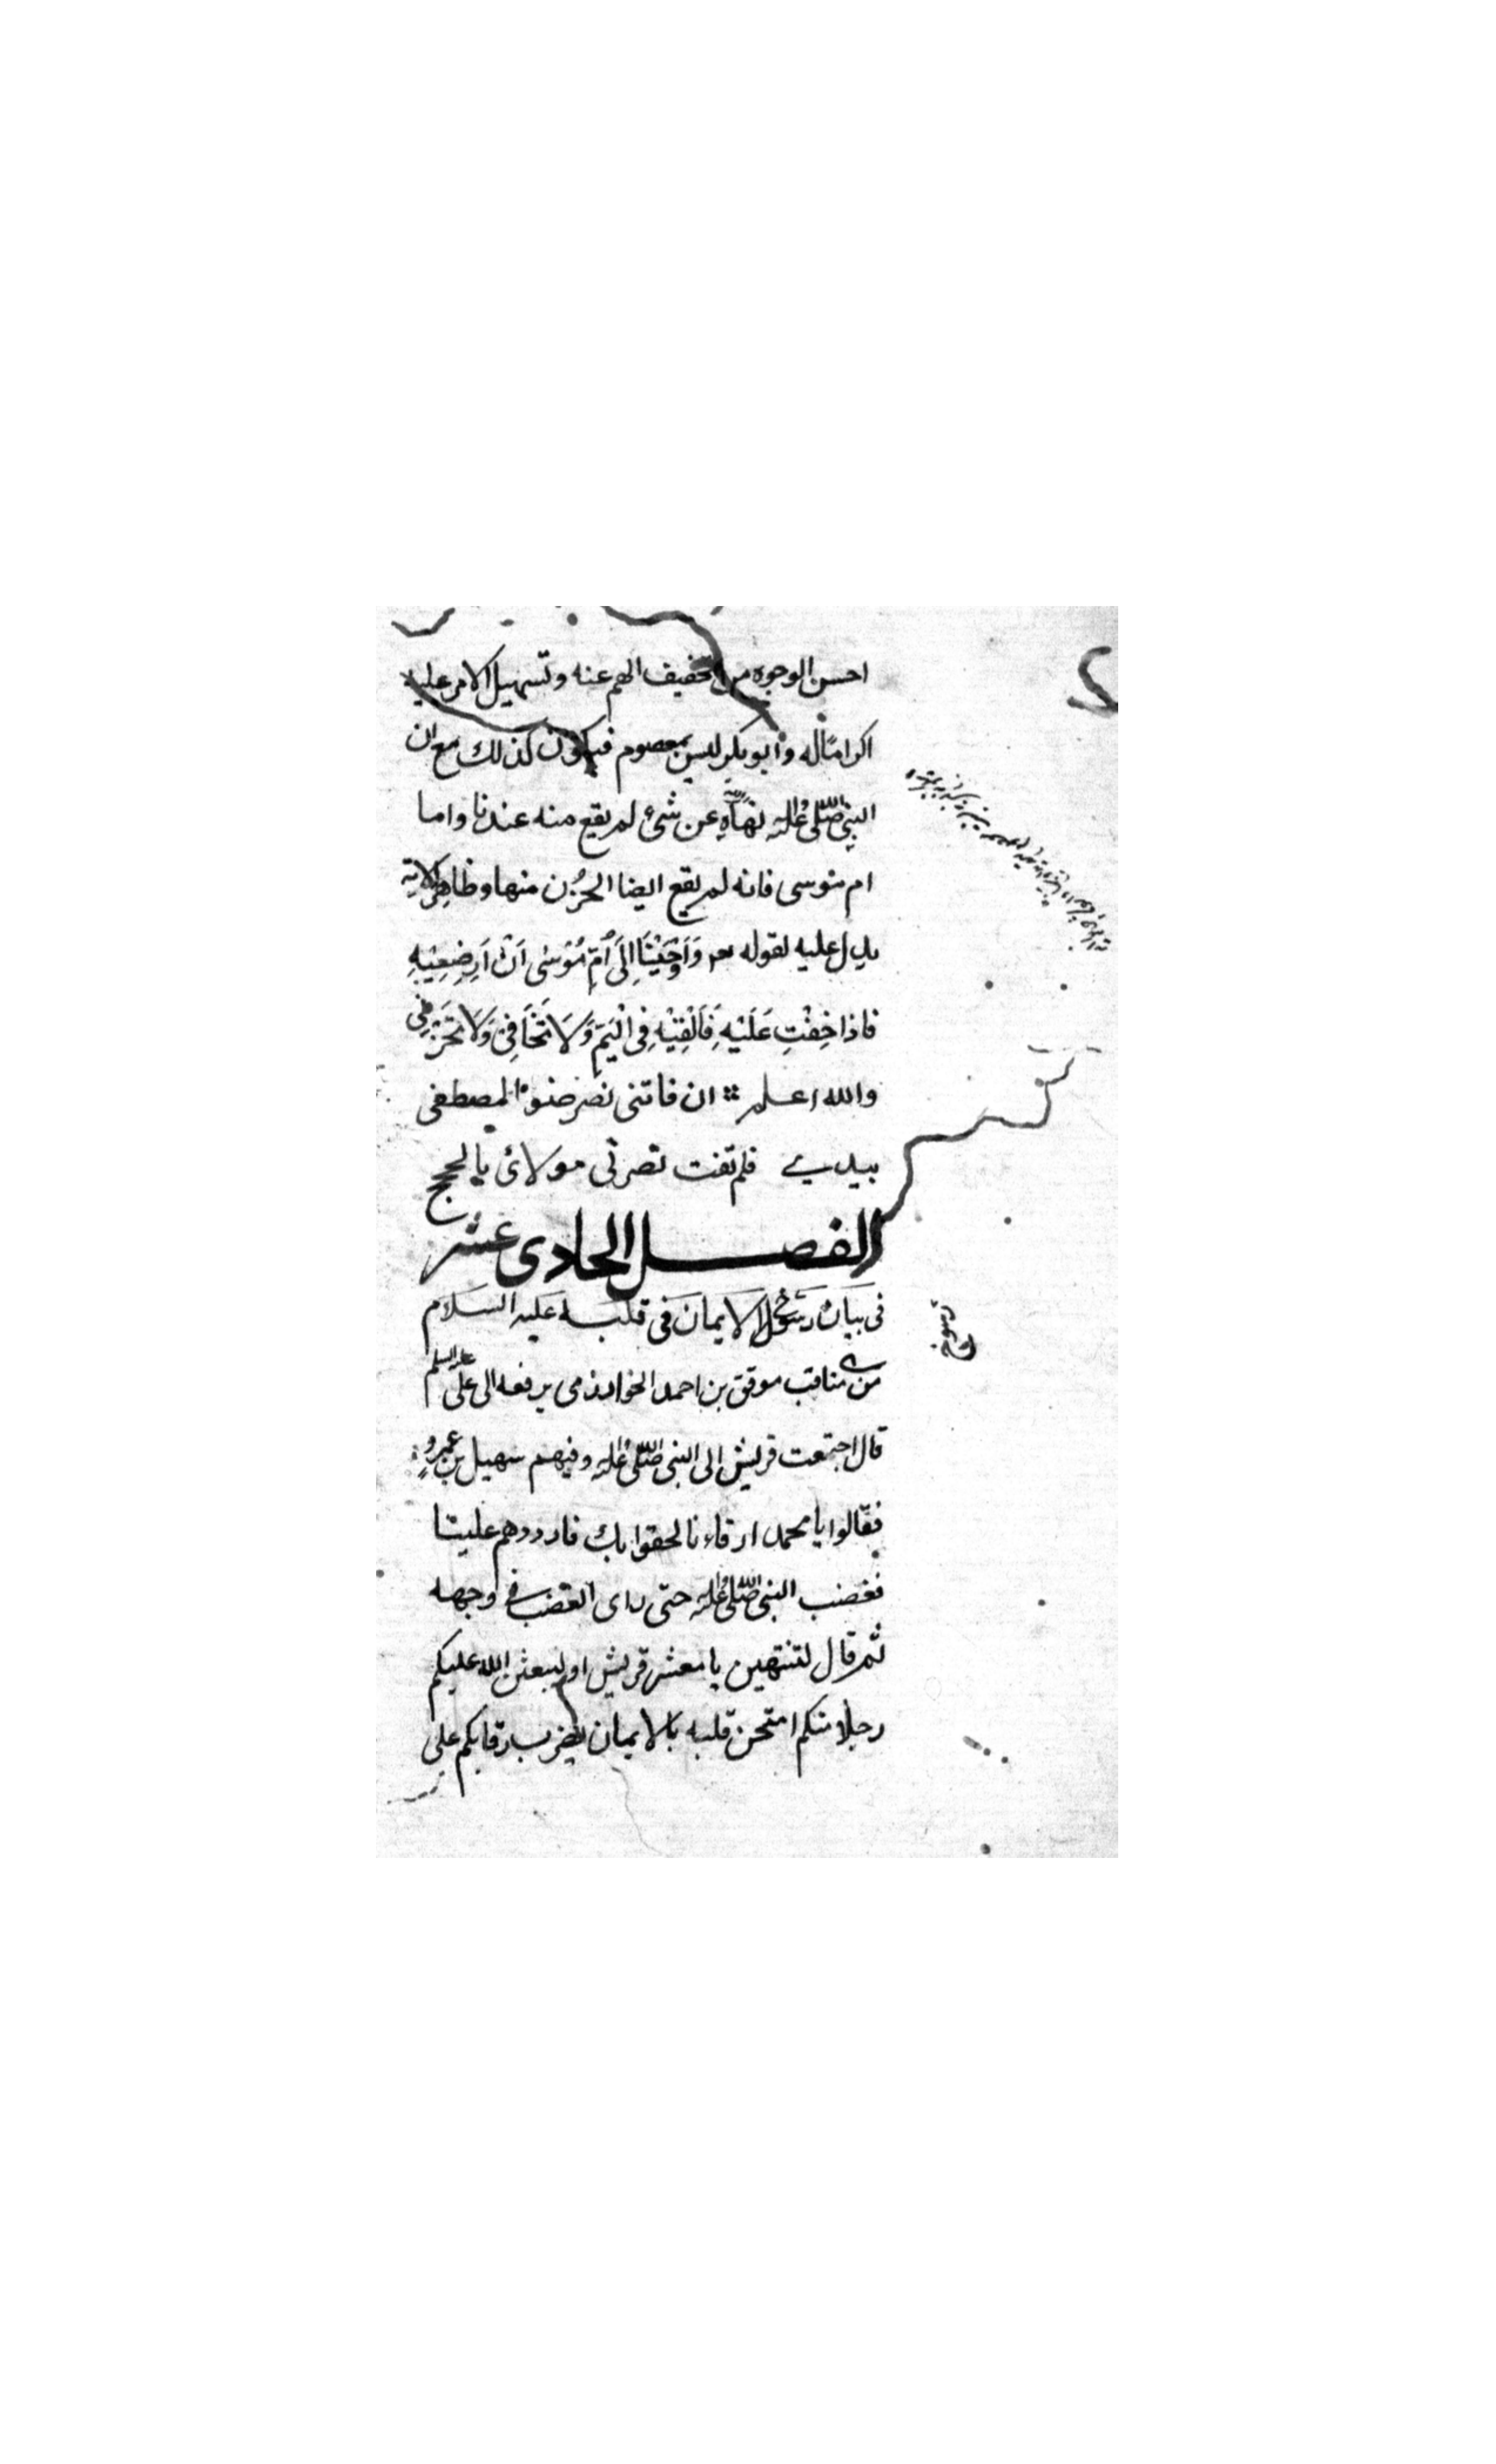 احسن الوجوه من تخفيف الهم عنه وتسهيل الامر عليه
اكراما له وابو بكر ليس بمعصوم فيكون كذلك مع ان
النبي صلى الله عليه نهاه عن شئ لم يقع منه عندنا واما
ام موسى فانه لم يقع ايضا الحزن منها وظاهر الاية
يدل عليه لقوله تعم وَاَوْحَيْنَا اِلَى اُمِّ مُوْسٰى اَنْ اَرْضِعِيْهِ
فاذا خِفْتِ عَلَيْهِ فَاَلْقِيْهِ فِى الْيَمِّ وَلَا تَخَافِىْ وَلَا تَحْزَنِى
والله اعلم ان فاتنى نصر صنو المصطفى
بيدي فلم تفت نصرتى مولاى بالحجج
الفصل الحادى عشر
فى بيان رسوخ الايمان فى قلبه عليه السلام
من مناقب موفق بن احمد الخوارزمى يرفعه الى على عليه السلم
قال اجتمعت قريش الى النبى صلى الله عليه وفيهم سهيل بن عمرو
فقالوا يا محمد ارقاءنا لحقوا بك فارددهم علينا
فغضب النبى صلى الله عليه حتى راى الغضب فى وجهه
ثم قال لتنتهين يا معشر قريش او ليبعثن الله عليكم
رجلا منكم امتحن قلبه بالايمان يضرب رقابكم على
رسوخ